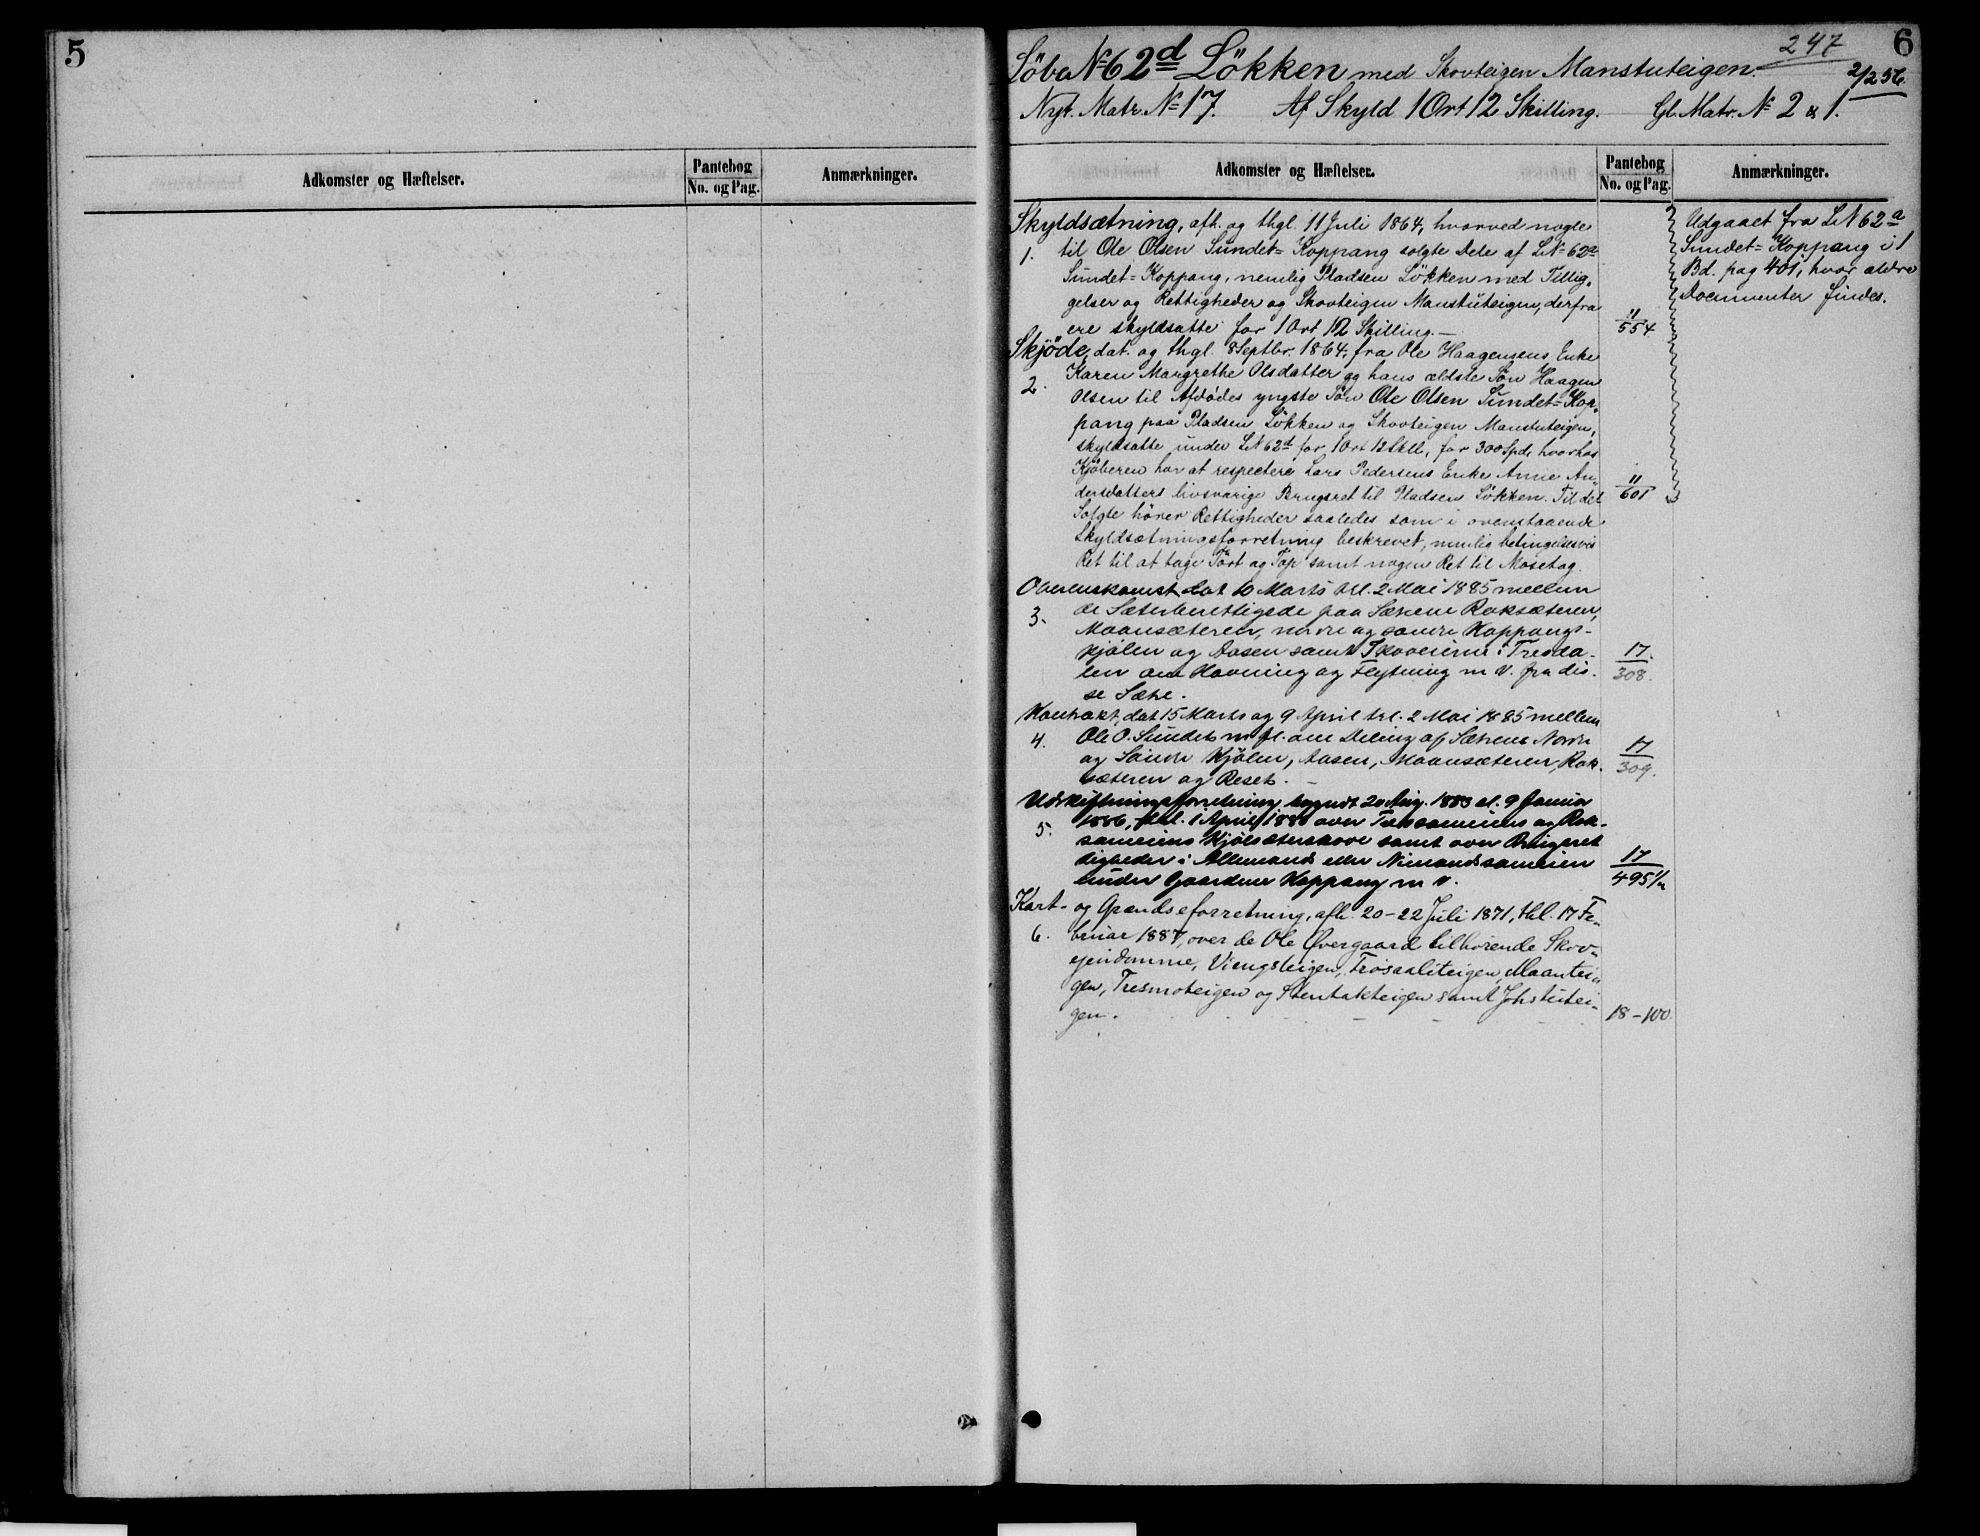 5
Adkomster og Hæftelser.
Pantebog
No. og Pag.
Anmærkninger.
247
6
Löbe No 62d Lökken med Skovteigen Manstuteigen.
2/256
Nyt. Matr. No 17. Af Skyld 1 Ort 12 Skilling. Gl. Matr. No 2 & 1.
Adkomster og Hæftelser.
Pantebog
No. og Pag.
Anmærkninger.
Skyldsætning, afh. og thgl. 11 Juli 1864, hvorved nogle
1. til Ole Olsen Sundet=Koppang solgte Dele af LNo 62a
Sundet=Koppang, nemlig Pladsen Lökken med Tillig-
gelser og Rettigheder og Skovteigen Manstuteigen, derfra
ere skyldsatte for 1 Ort 12 Skilling.—
11/554
Udgaaet fra LN 62a
Sundet=Koppang i 1
Bd. pag 401, hvor ældre
Documenter findes.
Skjöde, dat. og thgl. 8 Septbr. 1864, fra Ole Haagensens Enke
2. Karen Margrethe Olsdatter og hans ældste Sön Haagen
Olsen til Afdödes yngste Sön Ole Olsen Sundet=Kop-
pang paa Pladsen Lökken og Skovteigen Manstuteigen,
skyldsatte under LN 62d for 1 Ort 12 Skill, for 300 Spd, hvorhos
Kjöberen har at respectere Lars Pedersens Enke Anne An-
dersdatters livsvarige Brugsret til Pladsen Lökken. Til det
11/601
Solgte hörer Rettigheder saaledes som i ovenstaaende
Skyldsætningsforretning beskrevet, nemlig betingelsesvis
Ret til at tage Tört og Töp samt nogen Ret til Mosetag.
Overenskomst dat 10 Marts trl. 2 Mai 1885 mellem
3. de Sæterberettigede paa Sætrene Roksæteren,
Moansæteren, nordre og søndre Koppangs-
kjölen og Aasen samt Skoveierne i Tresda-
len om Havning og Flytning m V. fra dis-
se Sætre.
17/308.
Kontrakt, dat 15 Marts og 9 April trl. 2 Mai 1885 mellem
4. Ole O. Sundet m fl. om Deling af Sætrene Nordre
og Söndre Kjölen, Aasen, Moansæteren, Rok-
sæteren og Reset. —
17/309.
Udskiftningsforretning begyndt 20 Aug. 1883 sl. 9 Januar
5. 1886, thl. 1 April 1886 over samt over
samt over
i Allemands eller Nimandssameien
under Gaardene Koppang m V.
17/495 1/2
Kart- og Grændseforretning, afh. 20-22 Juli 1871, thl. 17 Fe-
6. bruar 1887, over de Ole Øvergaard tilhørende Skov-
ejendomme, Viengsteigen, Maantei-
gen, Tresmoteigen og Stentakteigen samt Johstutei-
gen.
18-100.